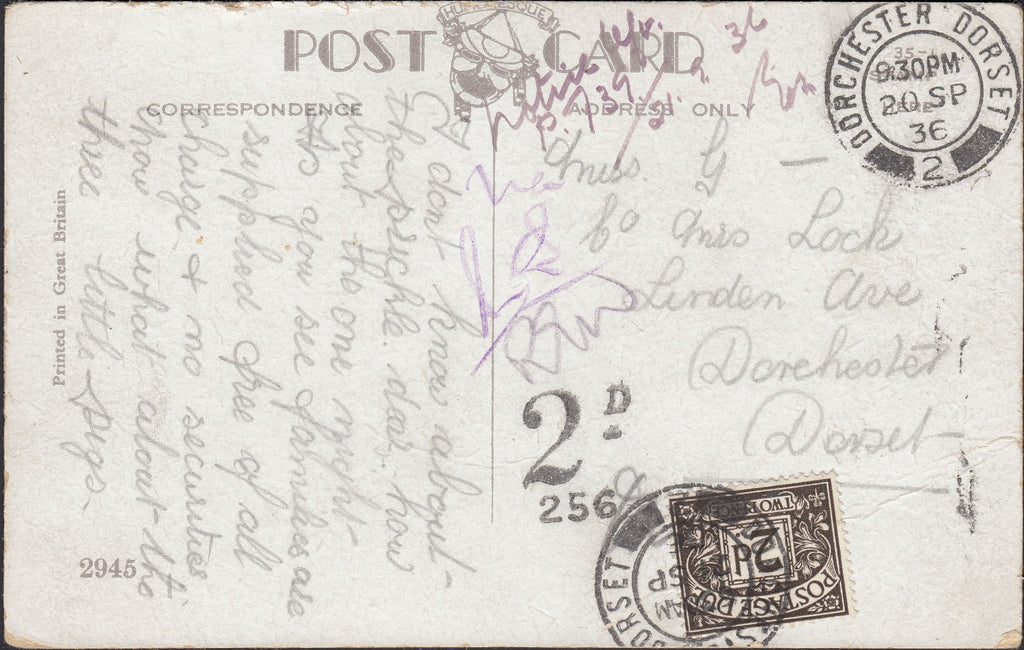 POST CARD
HUMORESQUE
CORRESPONDENCE
ADDRESS ONLY
36
DORCHESTER DORSET
9.30PM
20 SP
36
2
I don't know about
the psyche dear. how
about the one night
As you see families are
supplied free of all
charge & no securities
now what about the
three little pigs.
Miss. G —
c/o Miss Lock
Linden Ave
Dorchester
Dorset
2D
256
TWO PENCE
2d
POSTAGE DUE
DORSET
AM
SP
Printed in Great Britain
2945